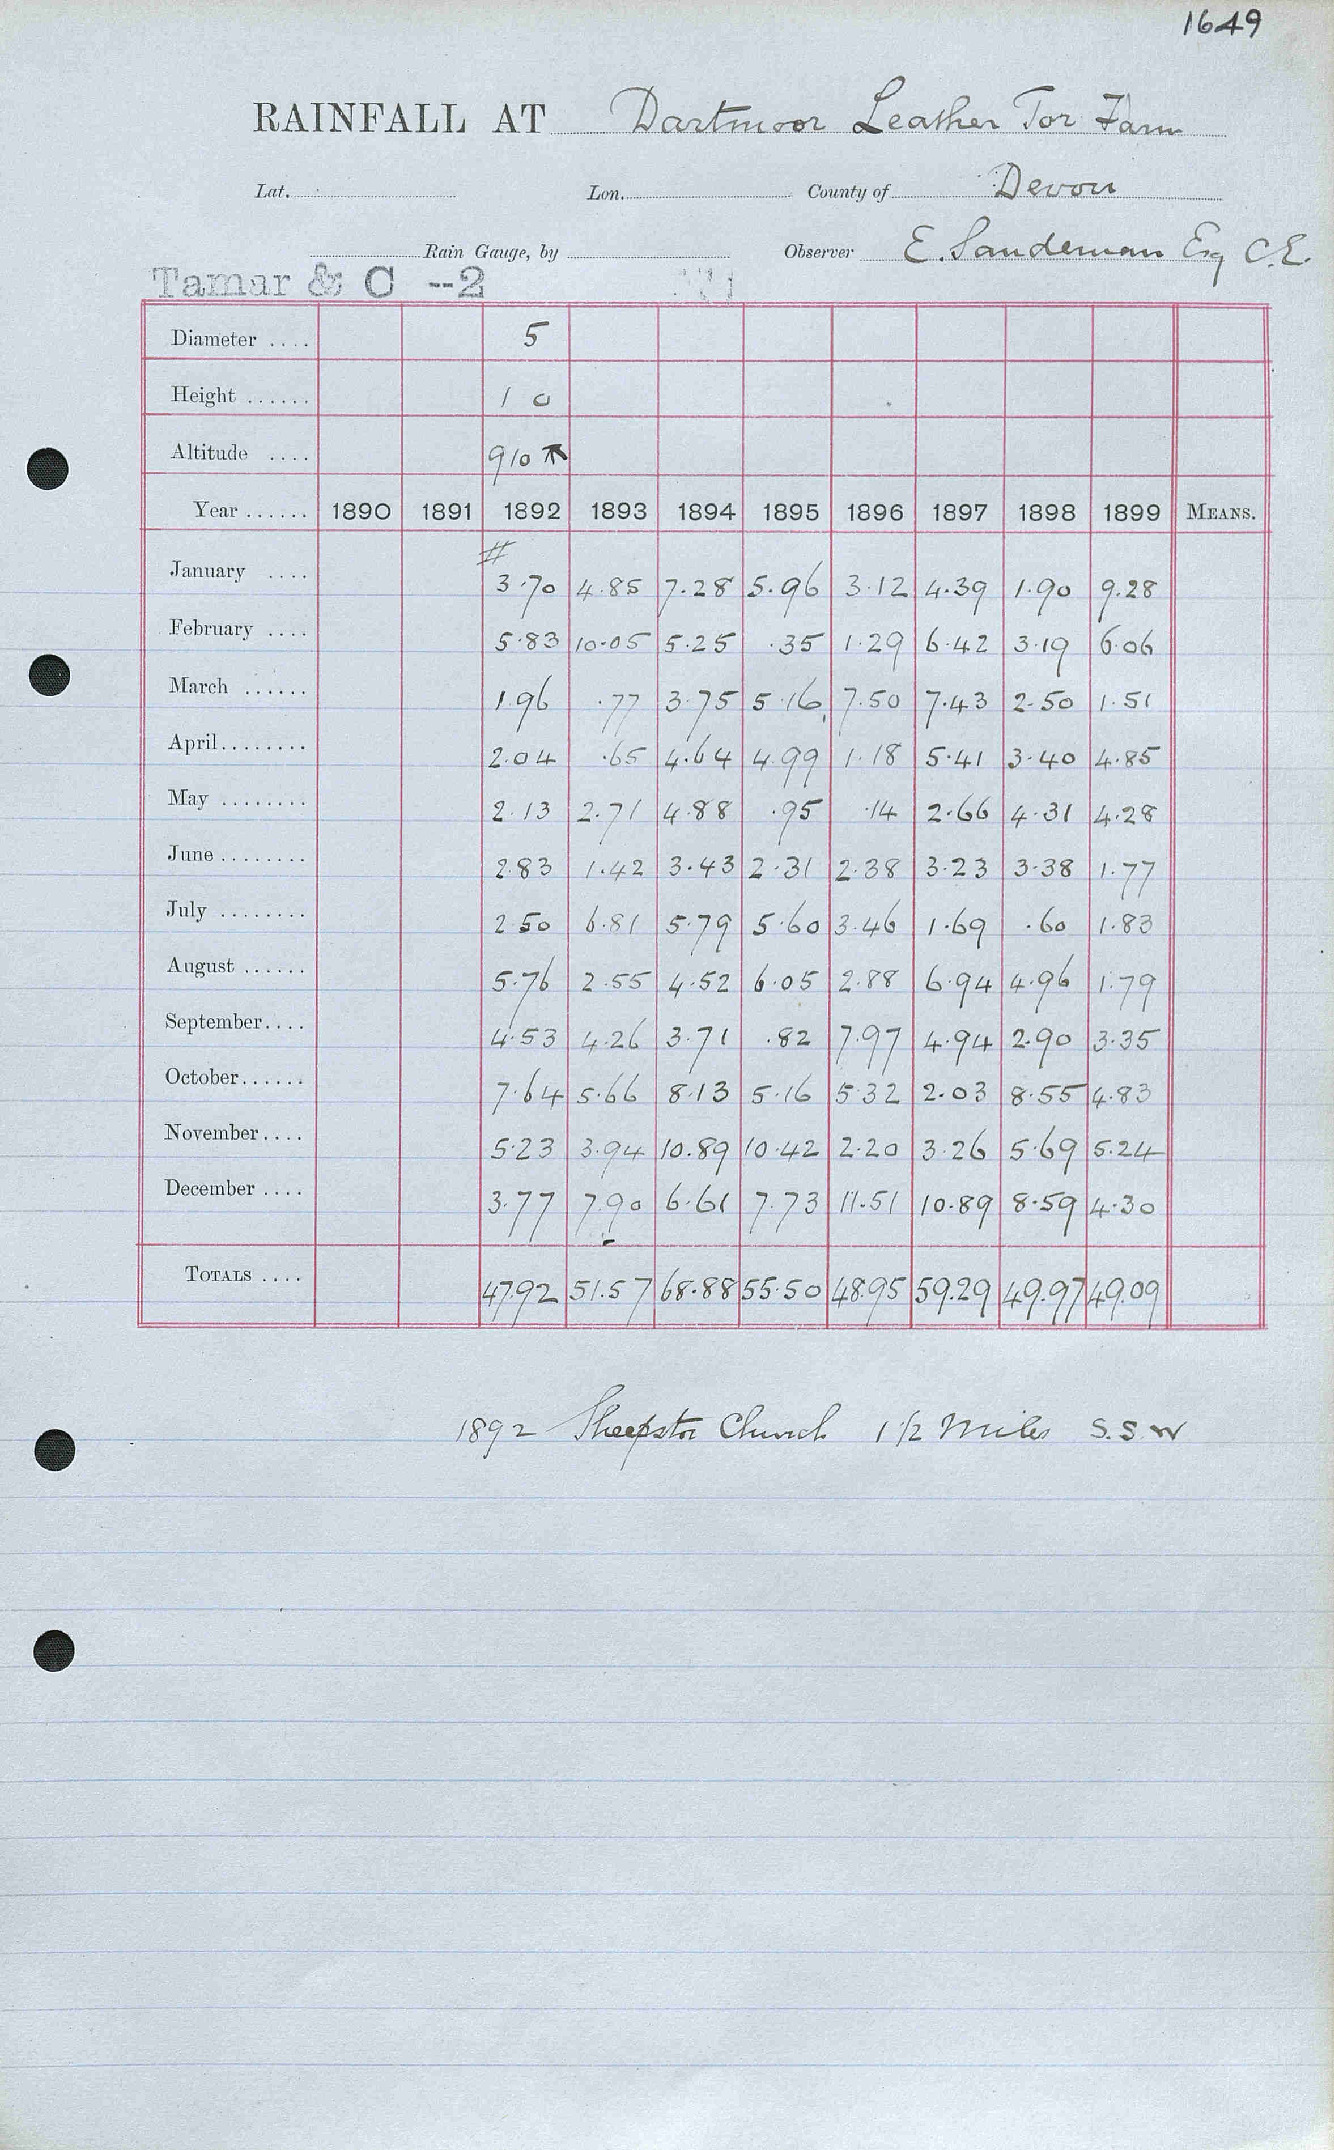 1649
RAINFALL AT Dartmoor Leather Tor Farm
Lat. Lon. County of Devon
Rain Gauge, by Observer E. Sandeman Esq C.E.
Tamar & C --2
Diameter .... 5
Height ...... 1 0
Altitude .... 910
Year ...... 1890 1891 1892 1893 1894 1895 1896 1897 1898 1899 MEANS.
#
January .... 3.70 4.85 7.28 5.96 3.12 4.39 1.90 9.28
February .... 5.83 10.05 5.25 .35 1.29 6.42 3.19 6.06
March ...... 1.96 .77 3.75 5.16 7.50 7.43 2.50 1.51
April........ 2.04 .65 4.64 4.99 1.18 5.41 3.40 4.85
May ........ 2.13 2.71 4.88 .95 .14 2.66 4.31 4.28
June ........ 2.83 1.42 3.43 2.31 2.38 3.23 3.38 1.77
July ........ 2.50 6.81 5.79 5.60 3.46 1.69 .60 1.83
August ...... 5.76 2.55 4.52 6.05 2.88 6.94 4.96 1.79
September.... 4.53 4.26 3.71 .82 7.97 4.94 2.90 3.35
October...... 7.64 5.66 8.13 5.16 5.32 2.03 8.55 4.83
November.... 5.23 3.94 10.89 10.42 2.20 3.26 5.69 5.24
December .... 3.77 7.90 6.61 7.73 11.51 10.89 8.59 4.30
TOTALS .... 47.92 51.57 68.88 55.50 48.95 59.29 49.97 49.09
1892 Sheepstor Church 1 1/2 Miles S.S.W